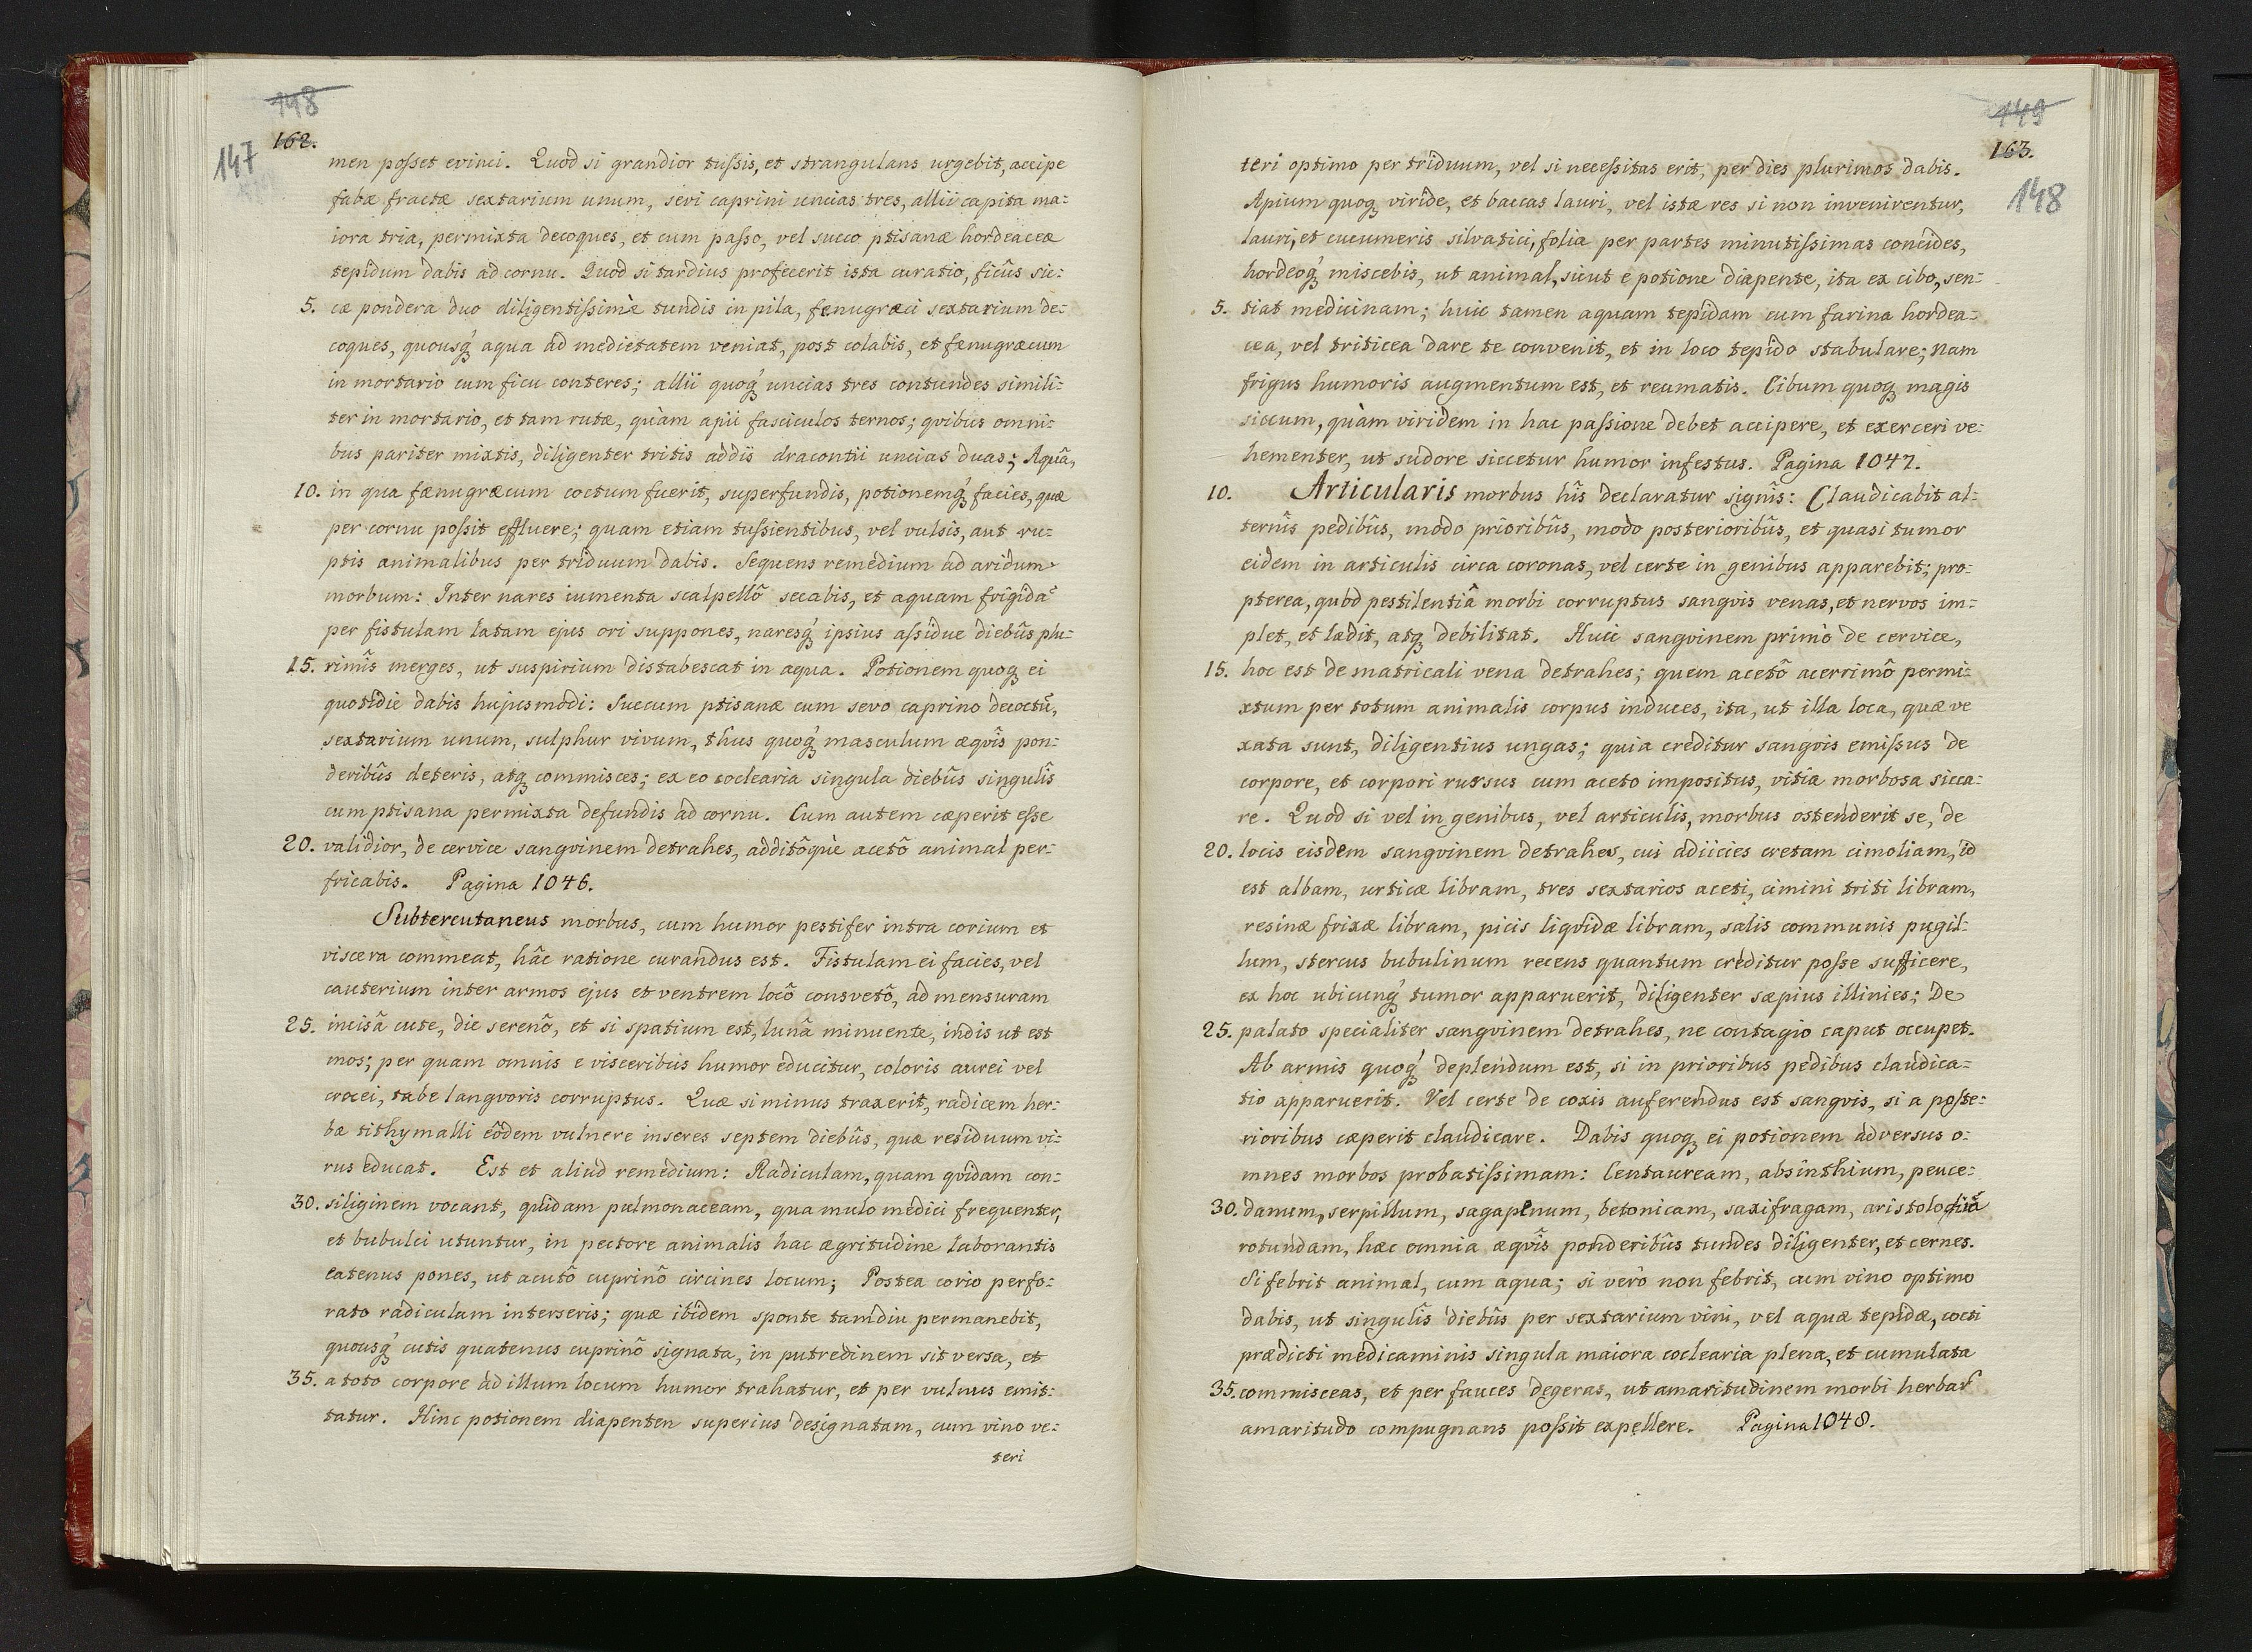 148
162.
147
men posset evinci. Quod si grandior tussis, et strangulans urgebit, accipe
fabæ fractæ sextarium unum, sevi caprini uncias tres, allii capita ma:
iora tria, permixta decoques, et cum passo, vel succo ptisanæ hordeaceæ
tepidum dabis ad cornu. Quod si tardius profecerit ista curatio, ficûs sic:
5. cæ pondera duo diligentissimè tundis in pila, fenugræci sextarium de:
coques, quousq́ aqua ad medietatem veniat, post colabis, et fænugræcum
in mortario cum ficu conteres; allii quoq́ uncias tres contundes simili:
ter in mortario, et tam rutæ, quàm apii fasciculos ternos; qvibus omni:
bus pariter mixtis, diligenter tritis addis dracontii uncias duas; Aquâ,
10. in qua fænugræcum coctum fuerit, superfundis, potionemq́ facies, quæ
per cornu possit effluere; quam etiam tussientibus, vel vulsis, aut ru:
ptis animalibus per triduum dabis. Sequens remedium ad aridum
morbum: Inter nares iumenta scalpellô secabis, et aquam frigidã
per fistulam latam ejus ori suppones, naresq́ ipsius assidue diebûs plu:
15. rimîs merges, ut suspirium distabescat in aqua. Potionem quoq ei
quotidie dabis hujusmodi: Succum ptisanæ cum sevo caprino decoctũ,
sextarium unum, sulphur vivum, thus quoq́ masculum æqvîs pon:
deribûs deteris, atq commisces; ex eo coclearia singula diebûs singulîs
cum ptisana permixta defundis ad cornu. Cum autem cæperit esse
20. validior, de cervice sangvinem detrahes, additôquè acetô animal per:
fricabis. Pagina 1046.
Subtercutaneus morbus, cum humor pestifer intra corium et
viscera commeat, hâc ratione curandus est. Fistulam ei facies, vel
cauterium inter armos ejus et ventrem locô consvetô, ad mensuram
25. incisâ cute, die serenô, et si spatium est, lunâ minuente, indis ut est
mos; per quam omnis e visceribus humor educitur, coloris aurei vel
crocei, tabe langvoris corruptus. Quæ si minus traxerit, radicem her:
bæ tithymalli eôdem vulnere inseres septem diebûs, quæ residuum vi:
rus educat. Est et aliud remedium: Radiculam, quam qvidam con:
30. siliginem vocant, quidam pulmonaceam, qua mulo medici frequenter,
et bubulci utuntur, in pectore animalis hac ægritudine laborantis
eatenus pones, ut acutô cuprinô circines locum; Postea corio perfo:
rato radiculam interseris; quæ ibidem sponte tamdiu permanebit,
quousq́ cutis quatenus cuprinô signata, in putredinem sit versa, et
35. a toto corpore ad illum locum humor trahatur, et per vulnus emit:
tatur. Hinc potionem diapenten superius designatam, cum vino ve:
teri
149
163.
148
teri optimo per triduum, vel si necessitas erit, per dies plurimos dabis.
Apium quoq viride, et baccas lauri, vel istæ res si non invenirentur,
lauri, et cucumeris silvatici, folia per partes minutissimas concides,
hordeoq́ miscebis, ut animal, sicut e potione diapente, ita ex cibo, sen:
5. tiat medicinam; huic tamen aquam tepidam cum farina hordea:
cea, vel triticea dare te convenit, et in loco tepido stabulare; nam
frigus humoris augmentum est, et reumatis. Cibum quoq magis
siccum, quàm viridem in hac passione debet accipere, et exerceri ve:
hementer, ut sudore siccetur humor infestus. Pagina 1047.
10. Articularis morbus hîs declaratur signîs: Claudicabit al:
ternîs pedibûs, modo prioribûs, modo posterioribûs, et quasi tumor
eidem in articulis circa coronas, vel certe in genibus apparebit; pro:
pterea, quòd pestilentiâ morbi corruptus sangvis venas, et nervos im:
plet, et lædit, atq debilitat. Huic sangvinem primò de cervice,
15. hoc est de matricali vena detrahes; quem acetô acerrimô permi:
xtum per totum animalis corpus induces, ita, ut illa loca, quæ ve
xata sunt, diligentius ungas; quia creditur sangvis emissus de
corpore, et corpori rursus cum aceto impositus, vitia morbosa sicca:
re. Quod si vel in genibus, vel articulis, morbus ostenderit se, de
20. locis eisdem sangvinem detrahes, cui adiicies cretam cimoliam, id
est albam, urticæ libram, tres sextarios aceti, cimini triti libram,
resinæ frixæ libram, picis liqvidæ libram, salis communis pugil:
lum, stercus bubulinum recens quantum creditur posse sufficere,
ex hoc ubicunq́ tumor apparuerit, diligenter sæpius illinies; De
25. palato specialiter sangvinem detrahes, ne contagio caput occupet.
Ab armis quoq́ deplendum est, si in prioribus pedibus claudica:
tio apparuerit. Vel certe de coxis auferendus est sangvis, si a poste:
rioribus cæperit claudicare. Dabis quoq ei potionem adversus o:
mnes morbos probatissimam: Centauream, absinthium, peuce:
30. danum, serpillum, sagapenum, betonicam, saxifragam, aristolochiã
rotundam, hæc omnia æqvîs ponderibûs tundes diligenter, et cernes.
Si febrit animal, cum aqua; si verò non febrit, cum vino optimo
dabis, ut singulîs diebûs per sextarium vini, vel aquæ tepidæ, cocti
prædicti medicaminis singula maiora coclearia plena, et cumulata
35. commisceas, et per fauces degeras, ut amaritudinem morbi herbar̃
amaritudo compugnans possit expellere. Pagina 1048.